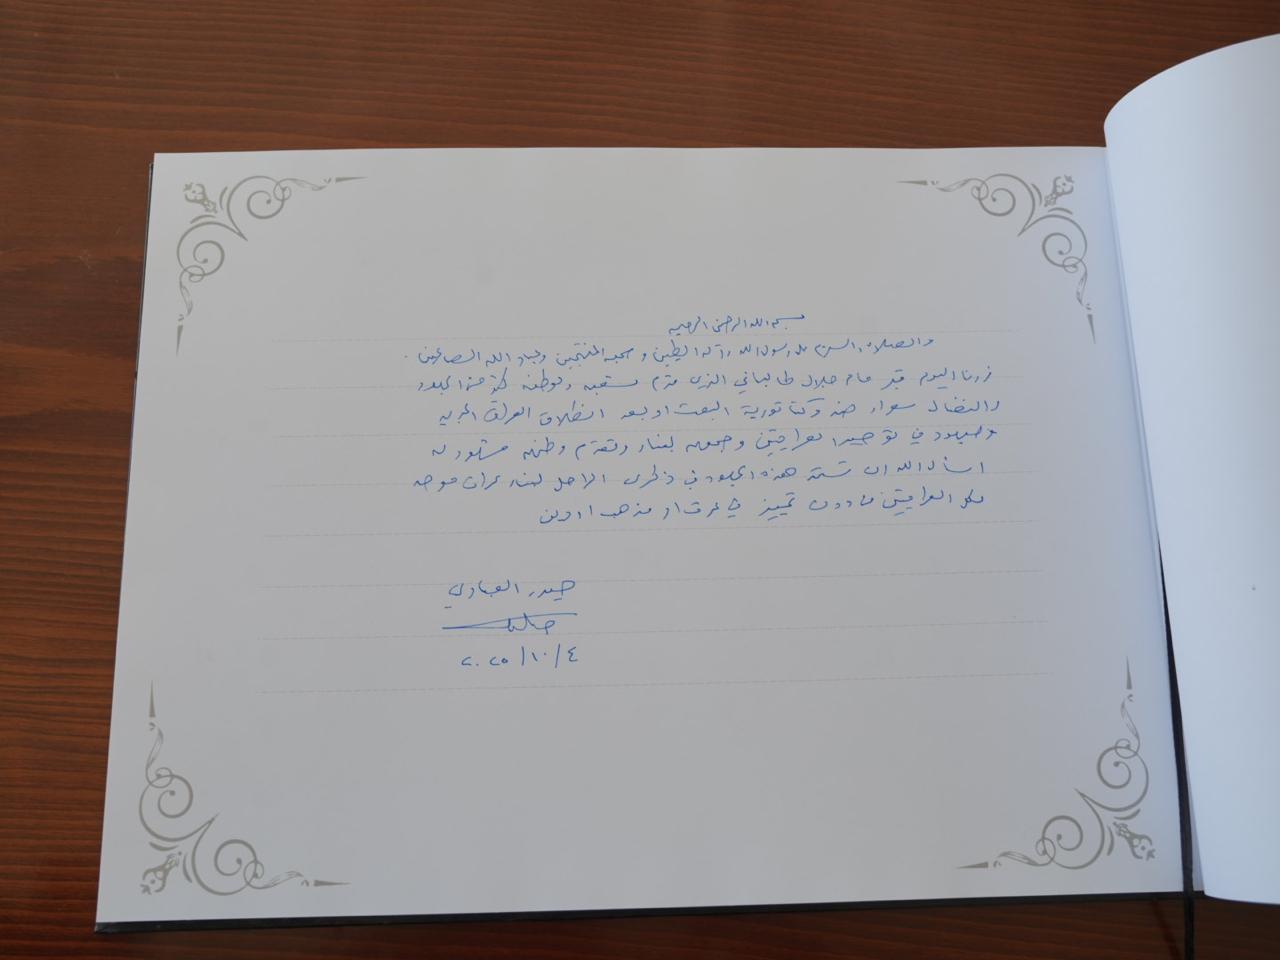 بسم الله الرحمن الرحيم
والصلاة والسلام على رسول الله وآله الطيبين وصحبه المنتجبين وعباد الله الصالحين.
زرنا اليوم قبر مام جلال طالباني الذي قدم لشعبه ولوطنه كثير من الجهود
والنضال سواء ضد دكتاتورية البعث او بعد انطلاق العراق الى الحرية
وجهوده في توحيد العراقيين وجمعهم لبناء وتقدم وطنهم مشهود له
اسأل الله ان تستمر هذه الجهود في ذكرى الراحل لبناء عراق موحد
لكل العراقيين من دون تمييز في عرق او مذهب او دين
حيدر العبادي
٢٠٢٥/١٠/٤